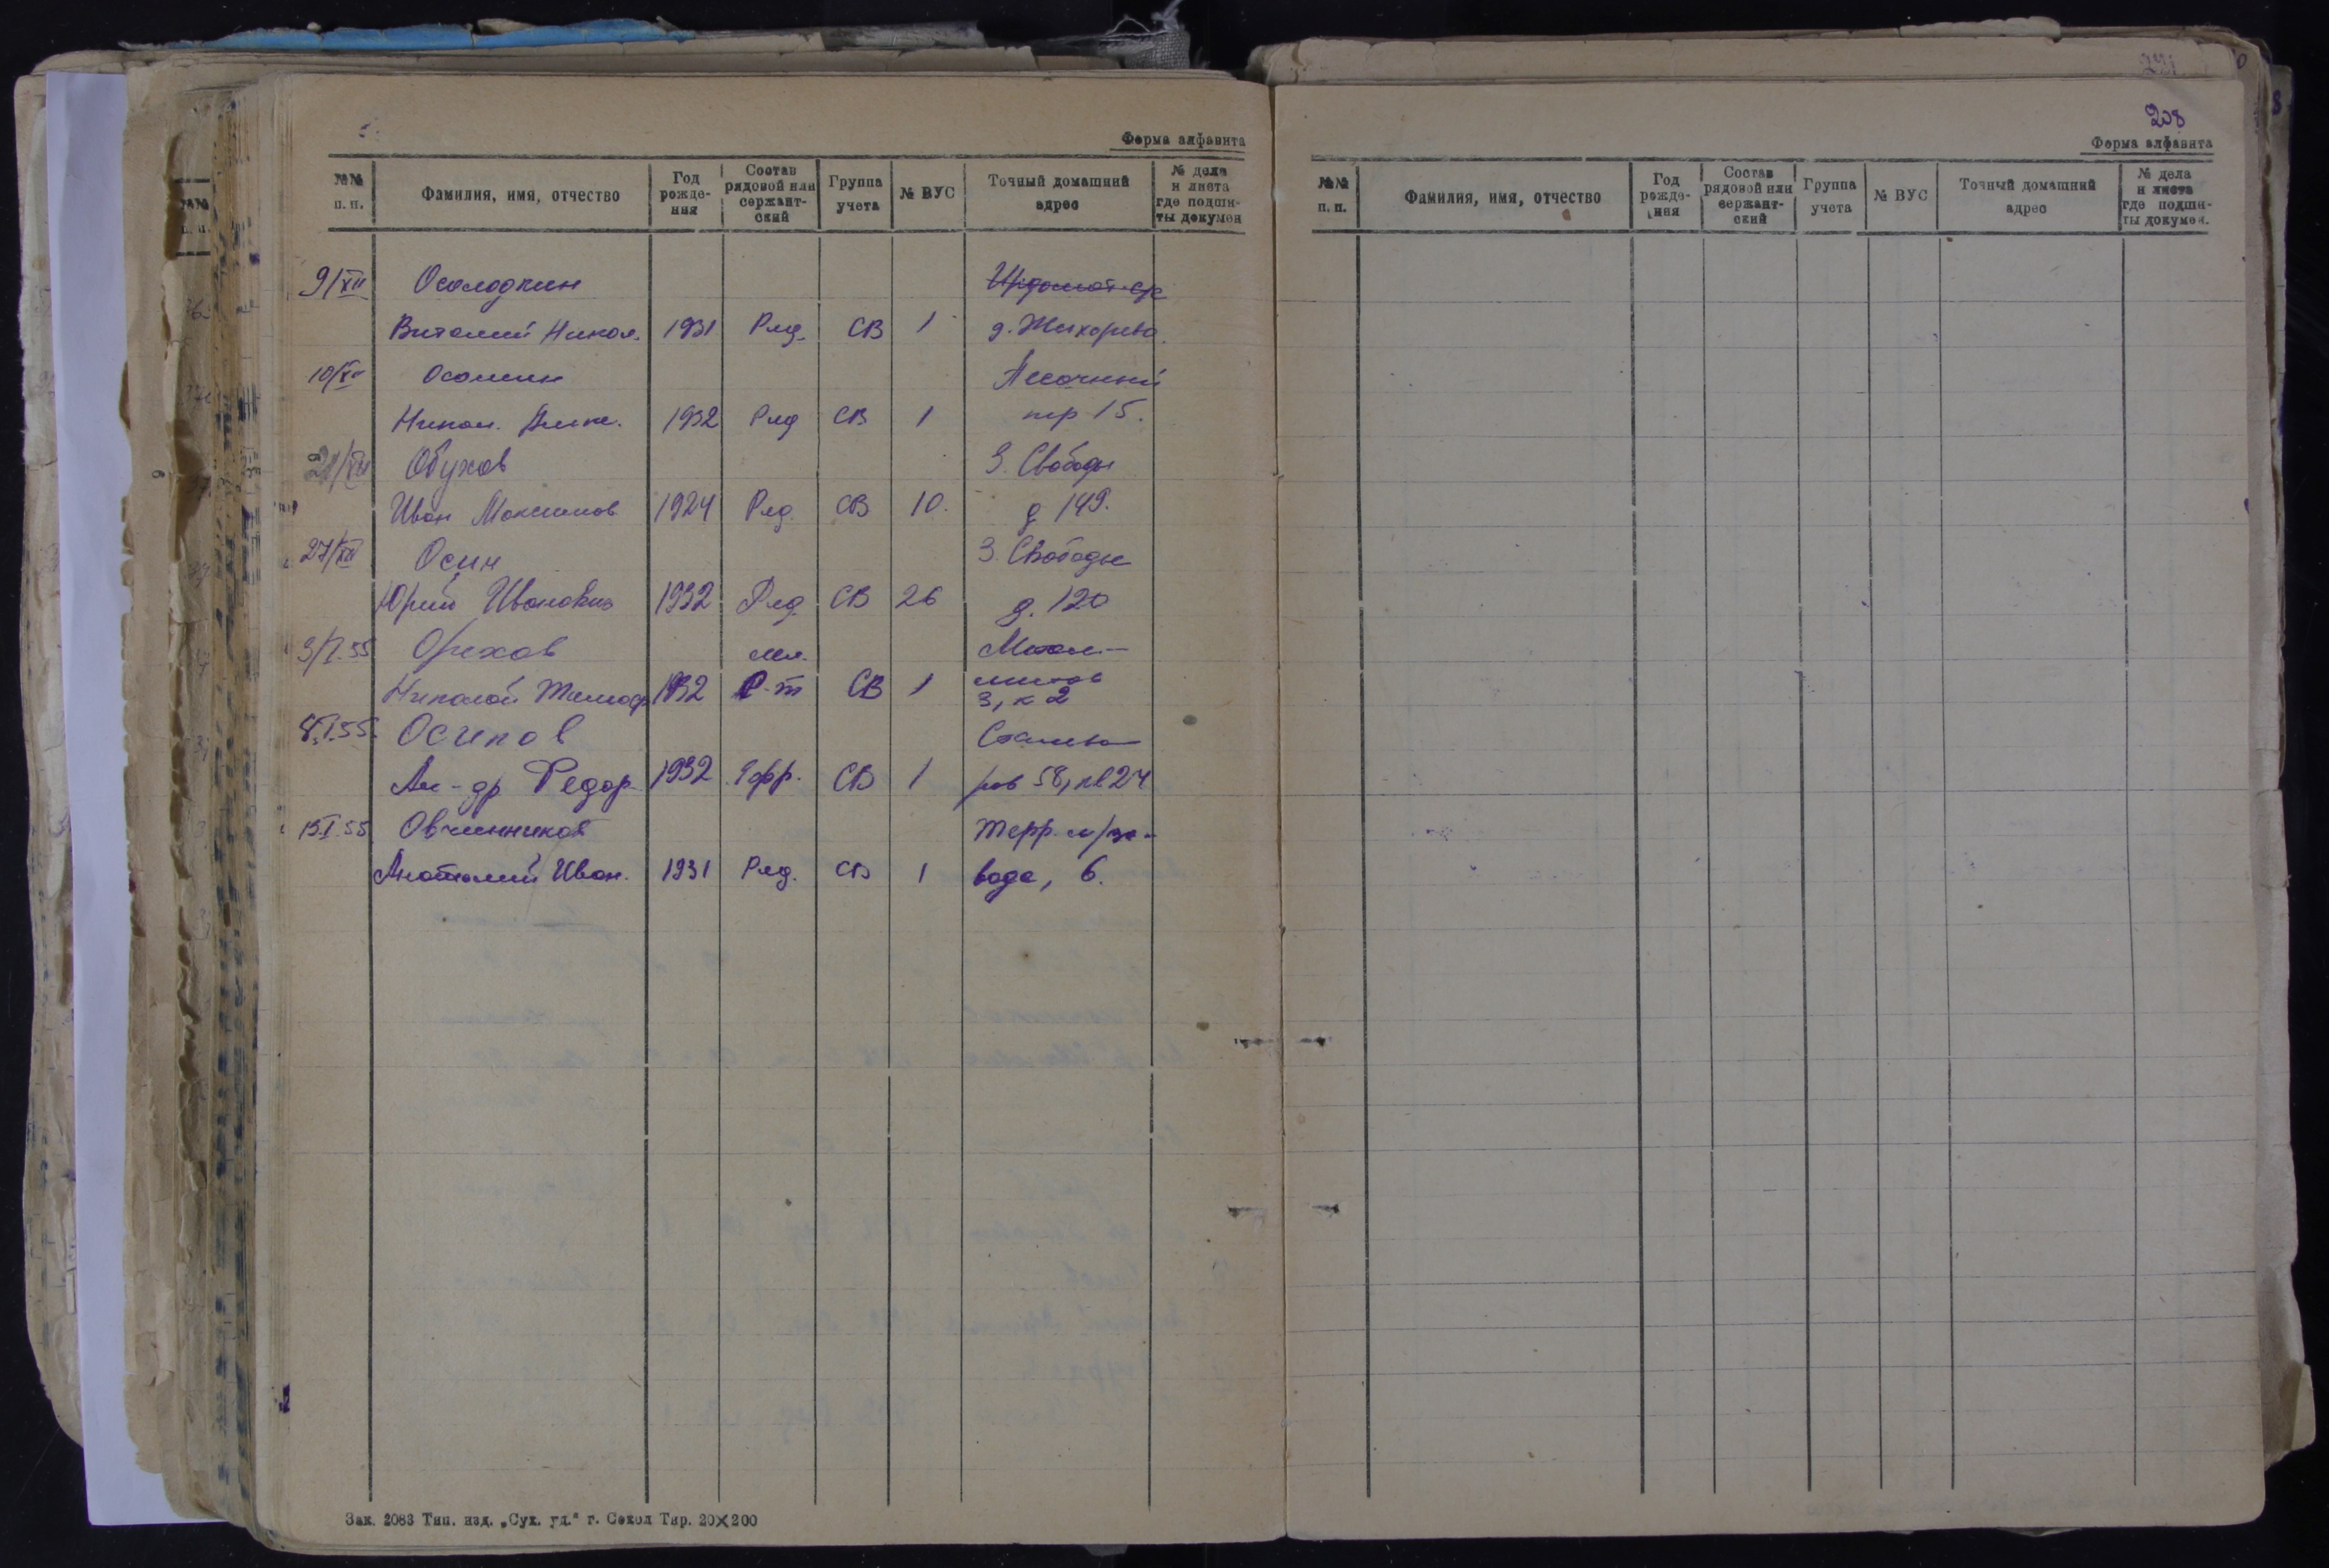 Форма алфавита
№№ п. п.
Фамилия, имя, отчество
Год рожде-ния
Состав рядовой или сержант-ский
Группа учета
№ ВУС
Точный домашний адрес
№ дела и листа где подши-ты докумен
9/XII Осолодкин
Виталий Никол. 1931 Ряд. СВ 1 д. Жихорево.
10/XII Осомин Песочный
Никол. 1932 Ряд СВ 1 пер 15.
Обухов З. Свободы
Иван Максимов 1924 Ряд. СВ 10. д 149.
27/XII Осин З. Свободы
Юрий Иванович 1932 Ряд. СВ 26 д. 120
3/I.55 Орехов мл.
Николай Тимоф 1932 С-т СВ 1 3, к 2
8.I.55. Осипов
Ал-др Федор. 1932 Ефр. СВ 1 ров 58, кв 24
15.I.55 Овчинников Терр. м/за-
Анатолий Иван. 1931 Ряд. СВ 1 вода, 6.
Зак. 2083 Тип. изд. „Сух. уд.“ г. Сокол Тир. 20×200
208
Форма алфавита
№№ п. п.
Фамилия, имя, отчество
Год рожде-ния
Состав рядовой или сержант-ский
Группа учета
№ ВУС
Точный домашний адрес
№ дела и листа где подши-ты докумен.